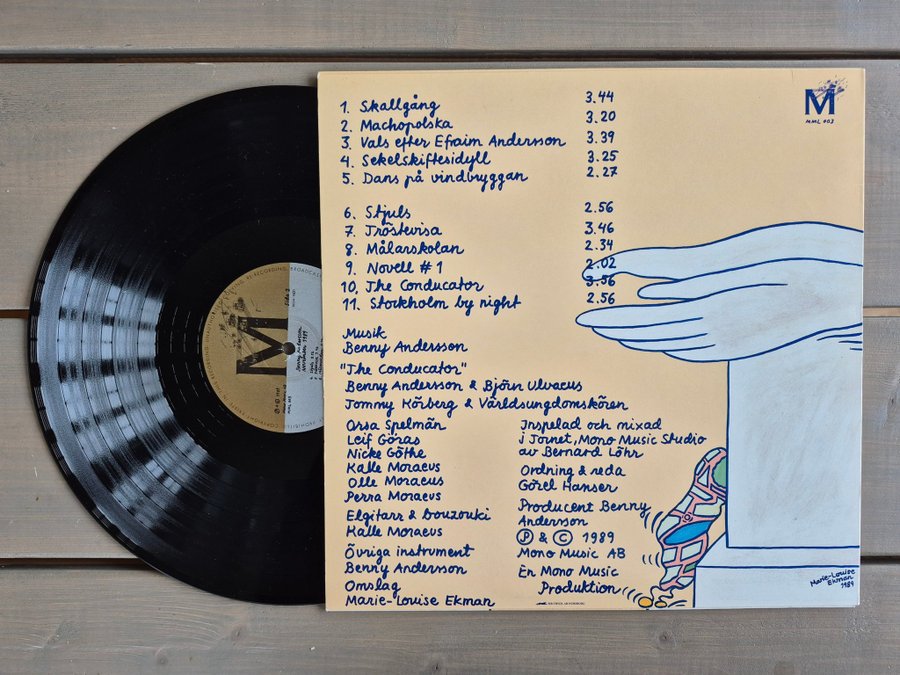 1. Skallgång 3.44
2. Machopolska 3.20
3. Vals efter Efraim Andersson 3.39
4. Sekelskiftesidyll 3.25
5. Dans på vindbryggan 2.27
6. Stjuls 2.56
7. Tröstevisa 3.46
8. Målarskolan 2.34
9. Novell #1 2.02
10. The Conducator 3.56
11. Stockholm by night 2.56
Musik
Benny Andersson
"The Conducator"
Benny Andersson & Björn Ulvaeus
Tommy Körberg & Världsungdomskören
Orsa Spelmän
Leif Göras
Nicke Göthe
Kalle Moraeus
Olle Moraeus
Perra Moraeus
Elgitarr & bouzouki
Kalle Moraeus
Övriga instrument
Benny Andersson
Omslag
Marie-Louise Ekman
Inspelad och mixad
i Tornet, Mono Music Studio
av Bernard Löhr
Ordning & reda
Görel Hanser
Producent Benny
Andersson
Ⓟ & © 1989
Mono Music AB
En Mono Music
Produktion
M
MML 003
Marie-Louise
Ekman
1989
M
Side 2
Benny Andersson
November 1989